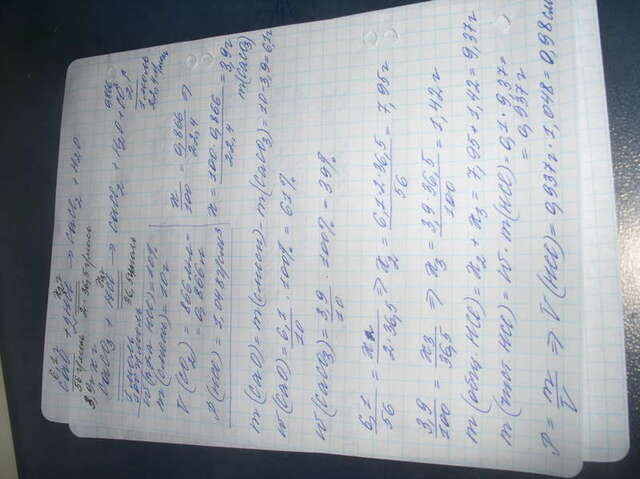 6,1г x₂г
CaO + 2HCl → CaCl₂ + H₂O
56 г/моль 2·36,5 г/моль
3,9г xг x₃г 0,866
CaCO₃ + HCl → CaCl₂ + H₂O + CO₂↑
1 моль 1 моль
100 г/моль 36,5 г/моль 22,4 л/моль
w(р-ра HCl) = 10%
m(смеси) = 10г
V(CO₂) = 866 мл =
= 0,866 л
ρ(HCl) = 1,048 г/см3
x/100 = 0,866/22,4 ⇒
x = 100·0,866/22,4 = 3,9г
m(CaCO₃)
m(CaO) = m(смеси) - m(CaCO₃) = 10-3,9 = 6,1г
w(CaO) = 6,1/10 · 100% = 61%
w(CaCO₃) = 3,9/10 · 100% = 39%
6,1/56 = x₂/2·36,5 ⇒ x₂ = 6,1·2·36,5/56 = 7,95г
3,9/100 = x₃/36,5 ⇒ x₃ = 3,9·36,5/100 = 1,42г
m(общ. HCl) = x₂ + x₃ = 7,95 + 1,42 = 9,37г
m(HCl) = w · m(HCl) = 0,1 · 9,37 =
= 0,937г
ρ = m/V ⇒ V(HCl) = 0,937г · 1,048 = 0,98